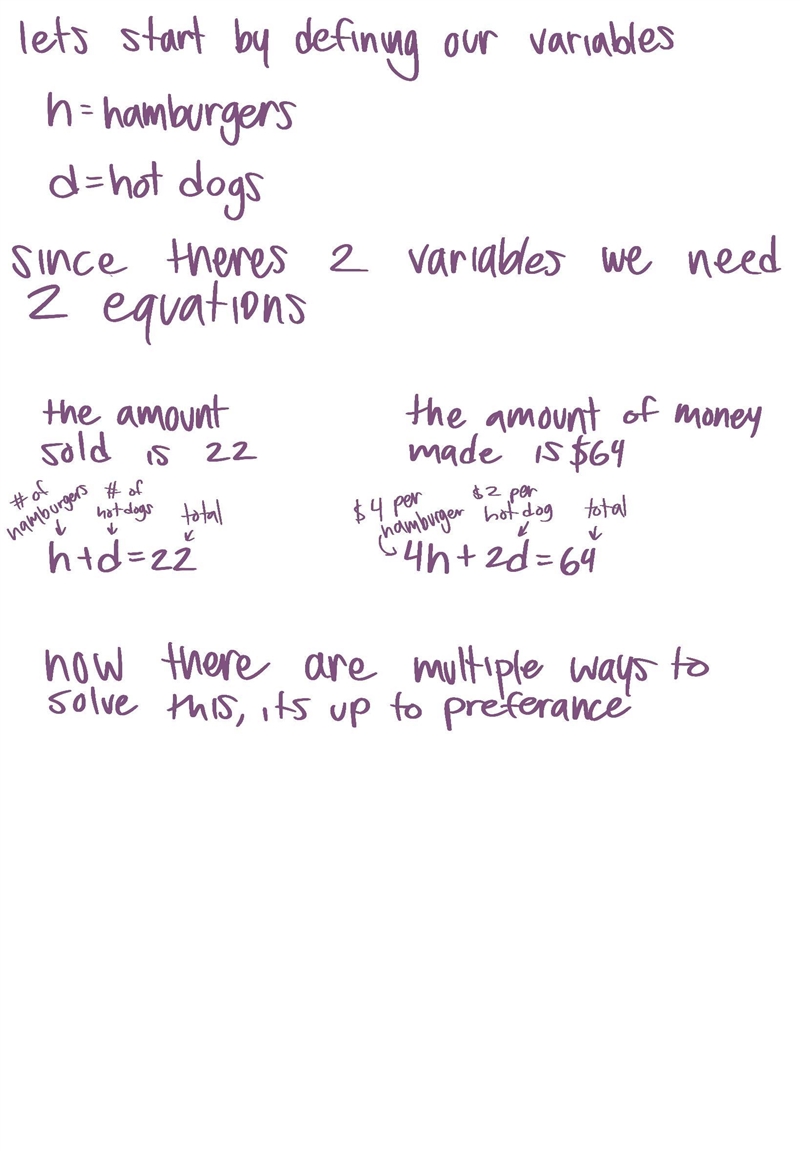 lets start by defining our variables
h=hamburgers
d=hot dogs
since theres 2 variables we need
2 equations
the amount
sold is 22
# of
hamburgers
# of
hotdogs
total
h+d=22
the amount of money
made is $64
$4 per
hamburger
$2 per
hot dog
total
4h+2d=64
now there are multiple ways to
solve this, its up to preferance